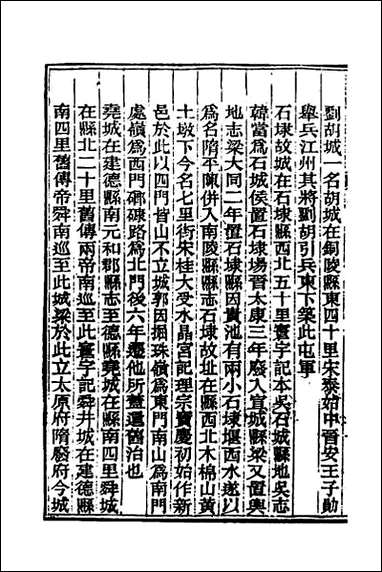 劉胡城一名胡城在銅陵縣東四十里宋泰始中晉安王子勛
舉兵江州其將劉胡引兵東下築此屯軍
石埭故城在石埭縣西北五十里寰宇記本吳石城縣地吳志
韓當爲石城侯置石埭場晉太康三年廢入宣城縣梁又置輿
地志梁大同二年置石埭縣因貴池有兩小石埭堰西水遂以
爲名隋平陳併入南陵縣縣志石埭故址在縣西北木棉山黃
土墩下今名七里街宋桂大受水晶宮記理宗寶慶初始作新
邑於此以四門皆山不立城郭因掘珠嶺爲東門南山爲南門
處嶺爲西門碎磜路爲北門後六年遷他所蓋還舊治也
堯城在建德縣南元和郡縣志至德縣堯城在縣南四里舜城
在縣北二十里舊傳兩帝南巡至此寰宇記舜井城在建德縣
南四里舊傳帝舜南巡至此城梁於此立太原府隋廢府今城